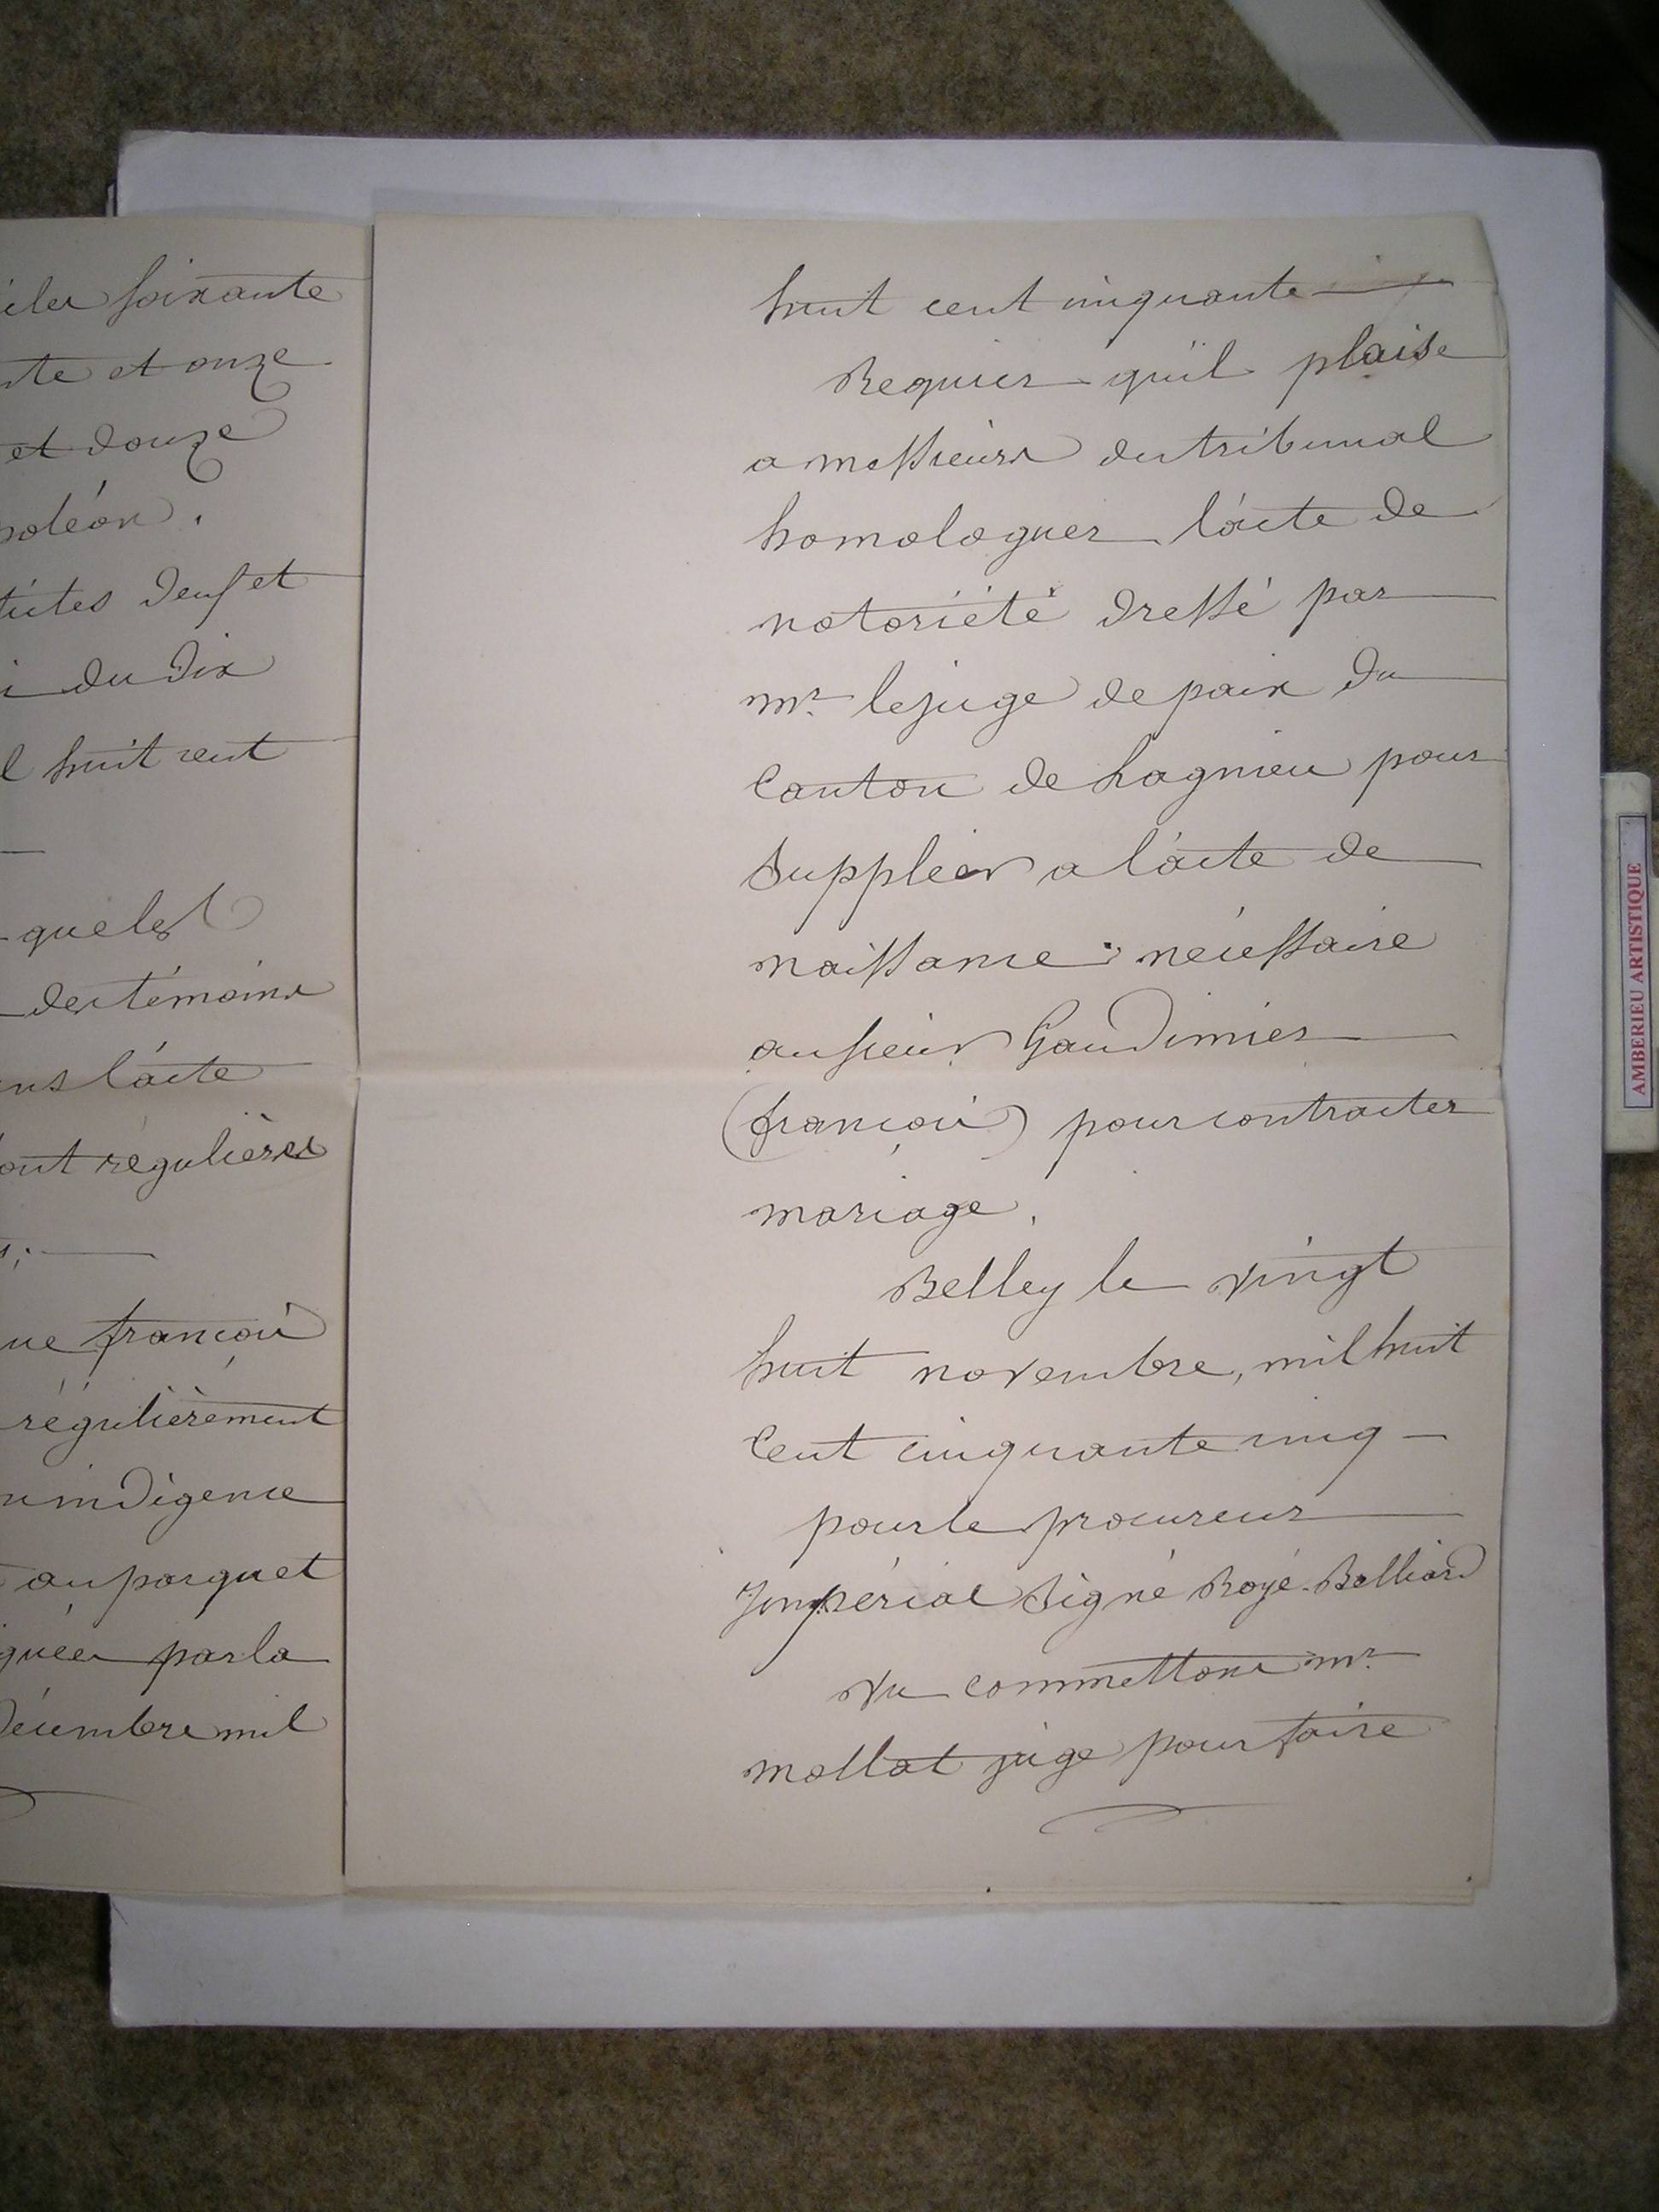 iles soixante
nte et onze
et douze
poléon.
ticles deux et
i du dix
l huit cent
que les
des témoins
ans l'acte
sont régulières
ue françois
régulièrement
n indigence
au parquet
quées par la
décembre mil
huit cent cinquante
Requier qu'il plaise
a messieurs du tribunal
homologuer l'acte de
notoriété dressé par
mr. le juge de paix du
Canton de Lagnieu pour
Suppléer a l'acte de
naissance nécessaire
au sieur Gaudimier
(françois) pour contracter
mariage.
Belley le vingt
huit novembre, mil huit
Cent cinquante cinq
pour le procureur
Impérial Signé Royé-Belliard
Vu commettons mr.
mollat juge pour faire
AMBERIEU ARTISTIQUE